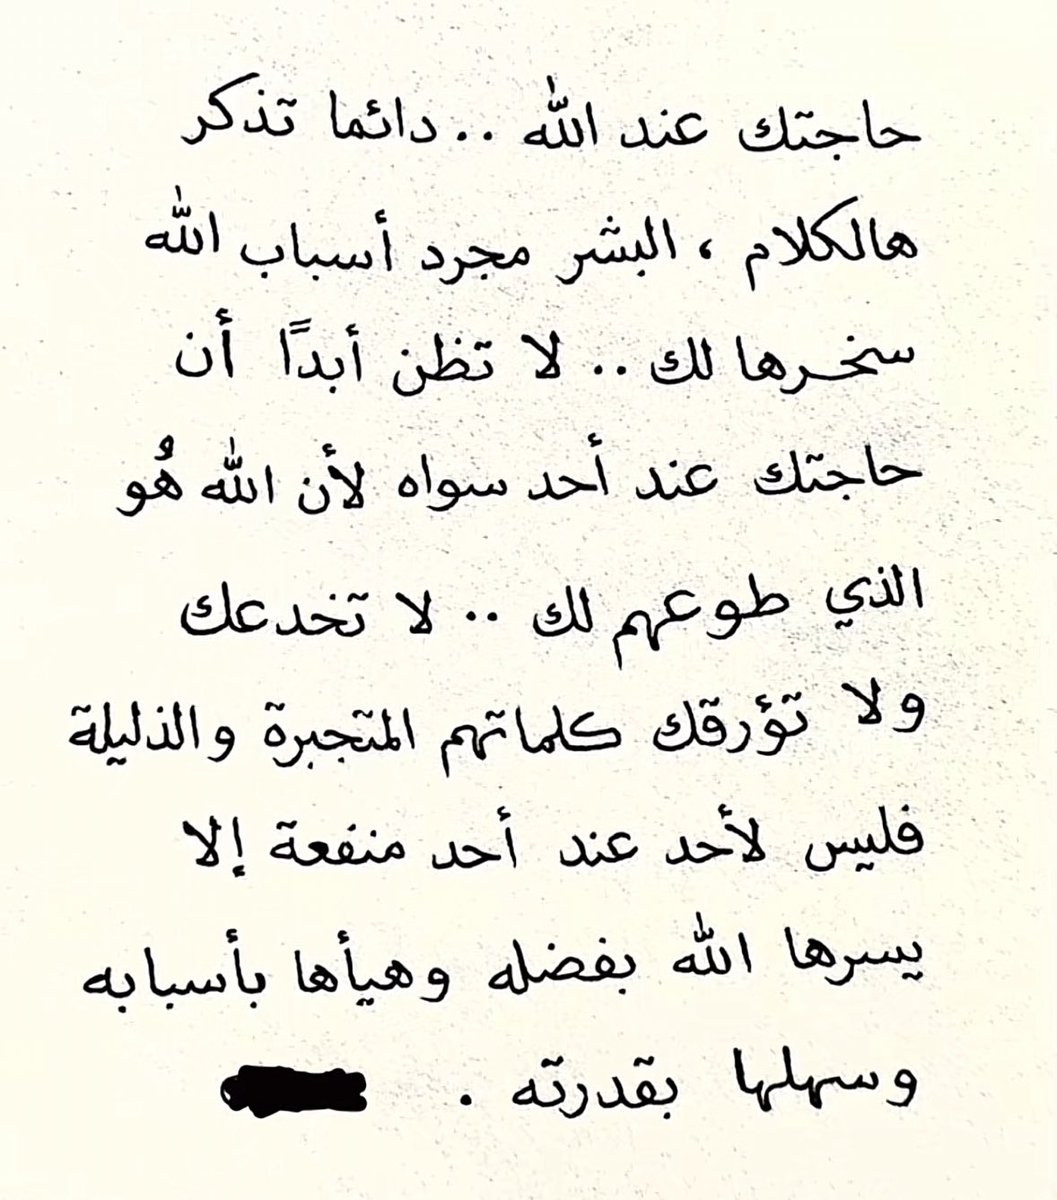 حاجتك عند الله .. دائما تذكر
هالكلام ، البشر مجرد أسباب الله
سخرها لك .. لا تظن أبدًا أن
حاجتك عند أحد سواه لأن الله هُو
الذي طوعهم لك .. لا تخدعك
ولا تؤرقك كلماتهم المتجبرة والذليلة
فليس لأحد عند أحد منفعة إلا
يسرها الله بفضله وهيأها بأسبابه
وسهلها بقدرته .